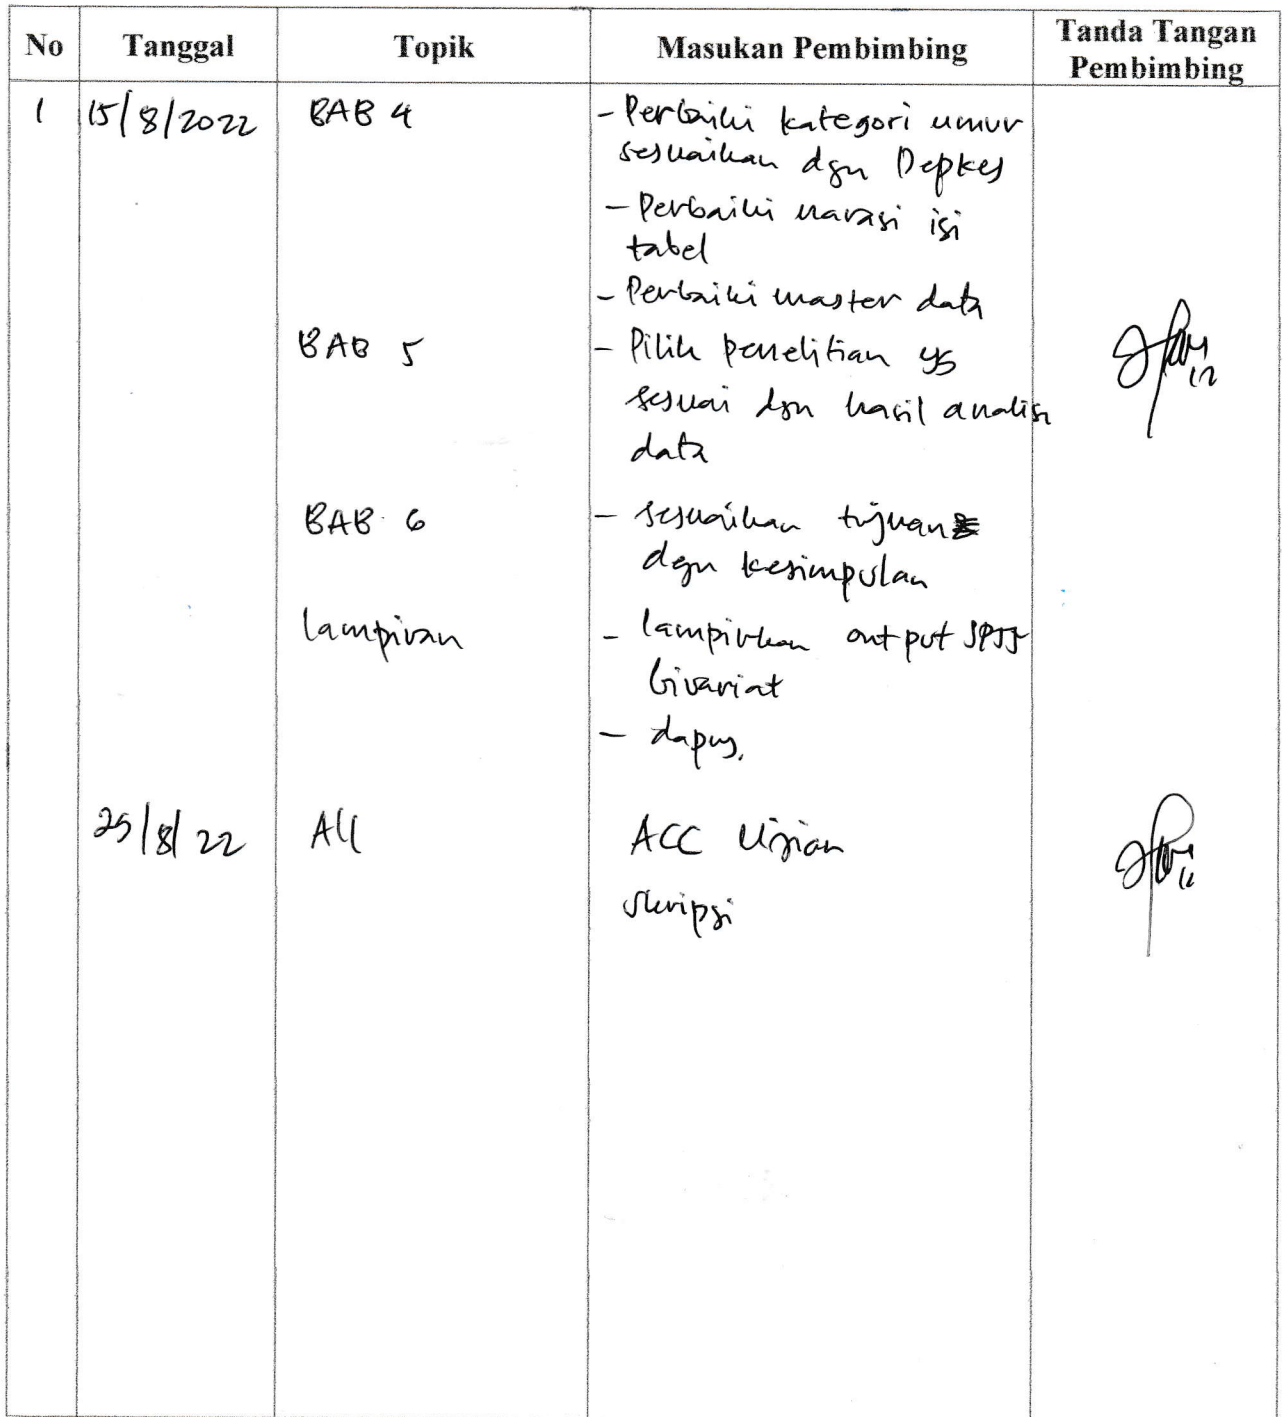 No Tanggal Topik Masukan Pembimbing Tanda Tangan Pembimbing
1 15/8/2022 BAB 4 - Perbaiki kategori umur
sesuaikan dgn Depkes
- Perbaiki narasi isi
tabel
- Perbaiki master data
BAB 5 - Pilih penelitian yg
sesuai dgn hasil analisis
data
BAB 6 - sesuaikan tujuan
dgn kesimpulan
lampiran - lampirkan output SPSS
bivariat
- dapus.
25/8/22 All ACC Ujian
skripsi